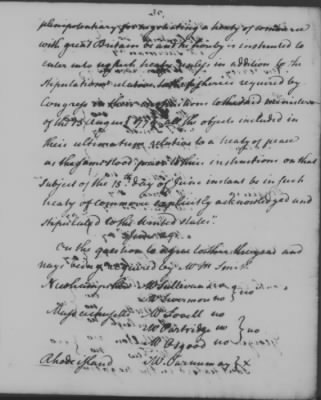 35.
plenipotentiary for negotiating a treaty of commerce
with great Britain be and he hereby is instructed to
enter into no such treaty unless in addition to the
stipulations relative to the fisheries required by
Congress in their instructions to the said minister
of the 13 August 1779 all the objects included in
their ultimatum relative to a treaty of peace
as the same stood prior to their instructions on that
subject of the 15th day of June instant be in such
treaty of commerce explicitly acknowledged and
stipulated to the United States".
On the question to agree to this the yeas and
nays being required by Mr. M. Smith
New hampshire Mr Sullivan ay
Mr Livermore no } no
Massachusetts Mr Lovell no
Mr Partridge no } no
Mr Osgood no
Rhode island Mr Varnum ay } x